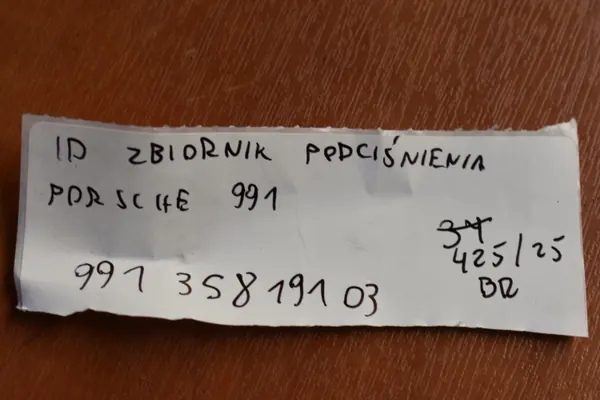 ID ZBIORNIK PODCIŚNIENIA
PORSCHE 991
425/25
BR
991 358 191 03